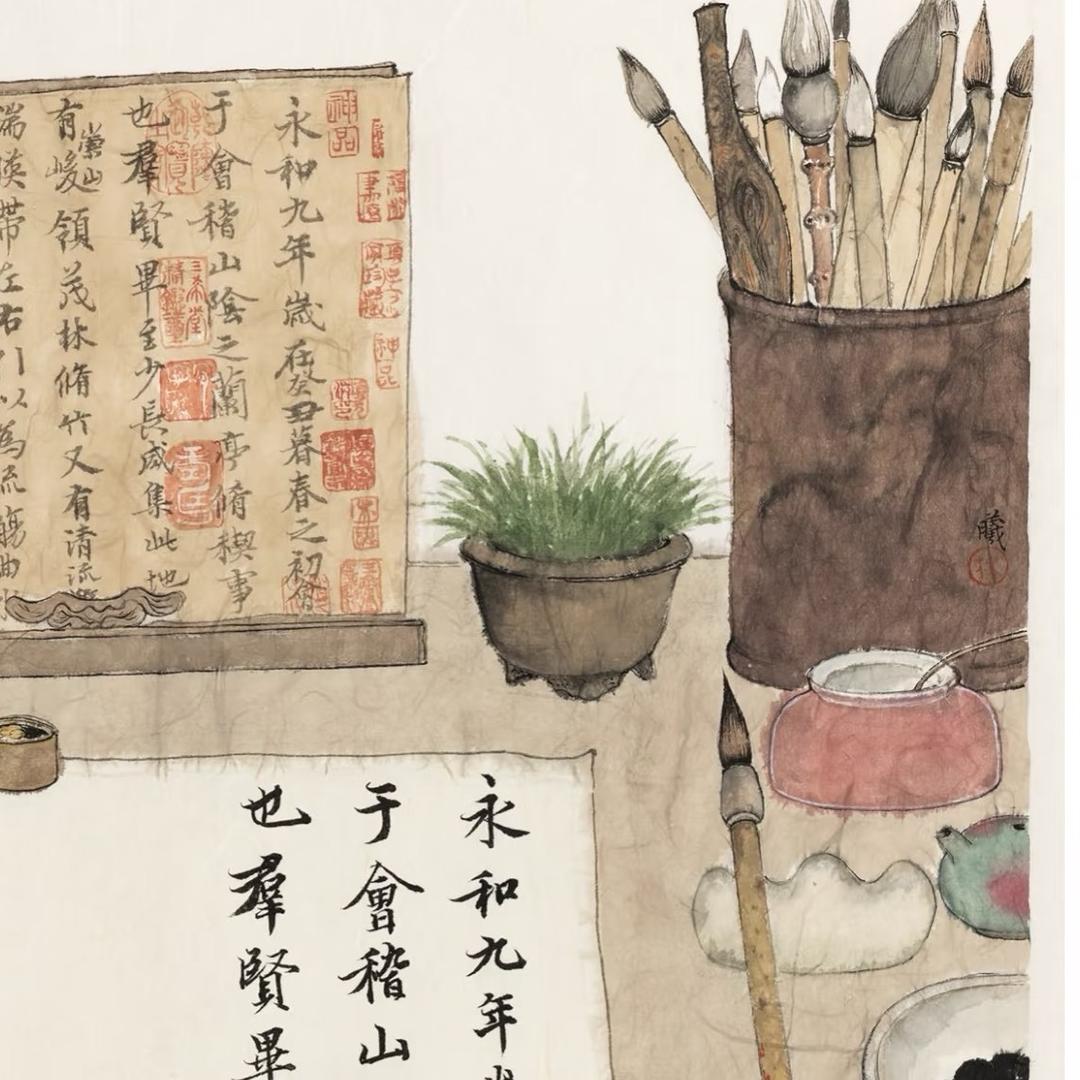 神品
神品
永和九年歲在癸丑暮春之初會
于會稽山陰之蘭亭脩稧事
三希堂精鑑璽
也羣賢畢至少長咸集此地
有崇山峻領茂林脩竹又有清流
湍暎帶左右引以為流觴曲水
曦
永和九年
于會稽山
也羣賢畢